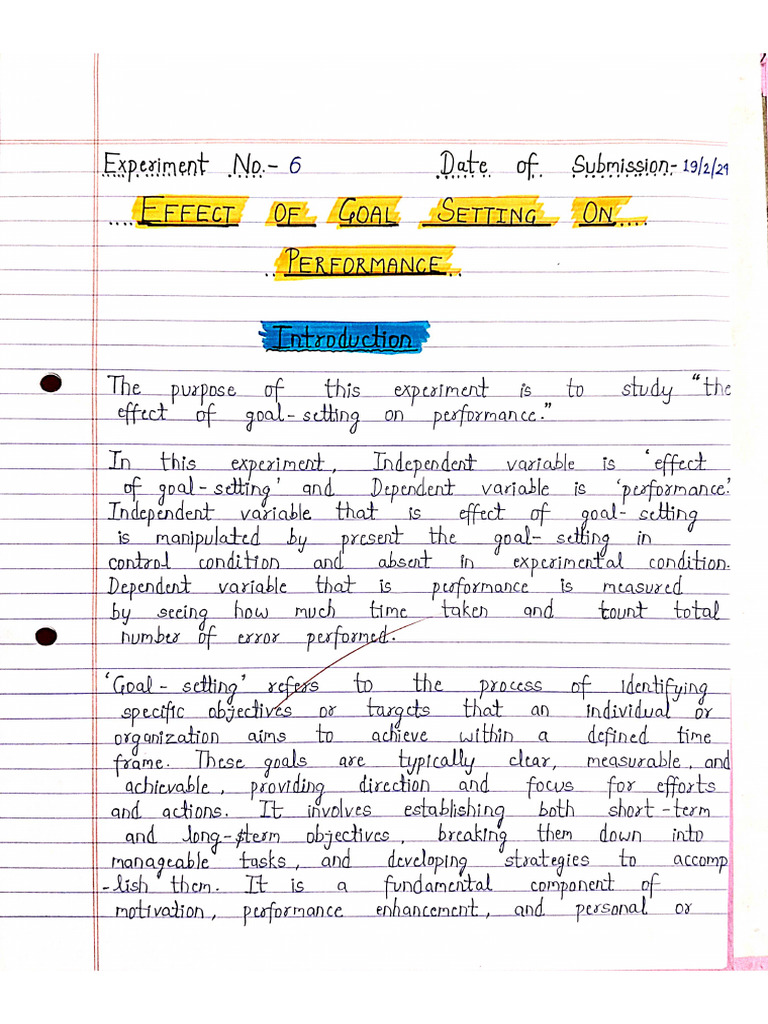 Experiment No.- 6 Date of Submission- 19/2/24
EFFECT OF GOAL SETTING ON
PERFORMANCE
Introduction
The purpose of this experiment is to study "the
effect of goal-setting on performance."
In this experiment, Independent variable is 'effect
of goal-setting' and Dependent variable is 'performance'.
Independent variable that is effect of goal-setting
is manipulated by present the goal-setting in
control condition and absent in experimental condition.
Dependent variable that is performance is measured
by seeing how much time taken and count total
number of error performed.
'Goal-setting' refers to the process of identifying
specific objectives or targets that an individual or
organization aims to achieve within a defined time
frame. These goals are typically clear, measurable, and
achievable, providing direction and focus for efforts
and actions. It involves establishing both short-term
and long-term objectives, breaking them down into
manageable tasks, and developing strategies to accomp
-lish them. It is a fundamental component of
motivation, performance enhancement, and personal or